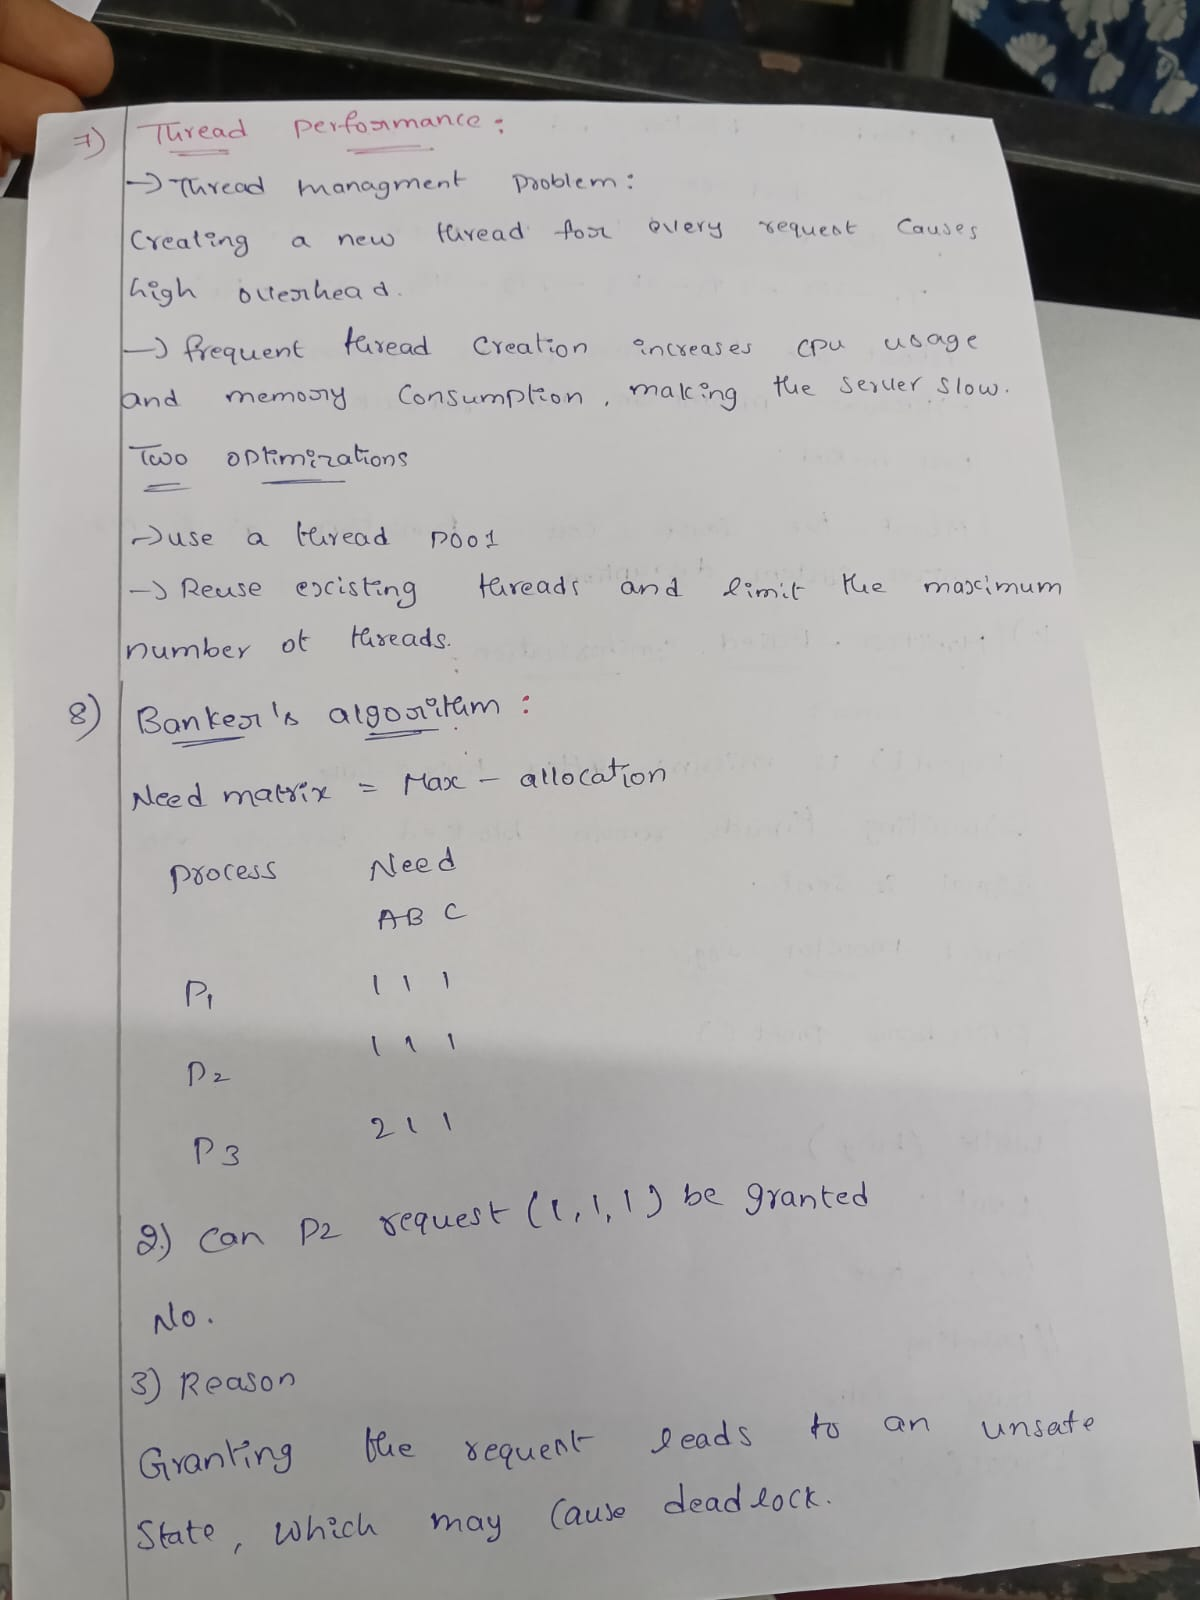 7) Thread performance:
→ Thread managment problem:
Creating a new thread for every request causes
high overhead.
→ frequent thread creation increases CPU usage
and memory consumption, making the server slow.
Two optimizations
→ use a thread pool
→ Reuse existing threads and limit the maximum
number of threads.
8) Banker's algorithm:
Need matrix = Max - allocation
Process Need
A B C
P1 1 1 1
P2 1 1 1
P3 2 1 1
2) Can P2 request (1,1,1) be granted
No.
3) Reason
Granting the request leads to an unsafe
State, which may cause deadlock.